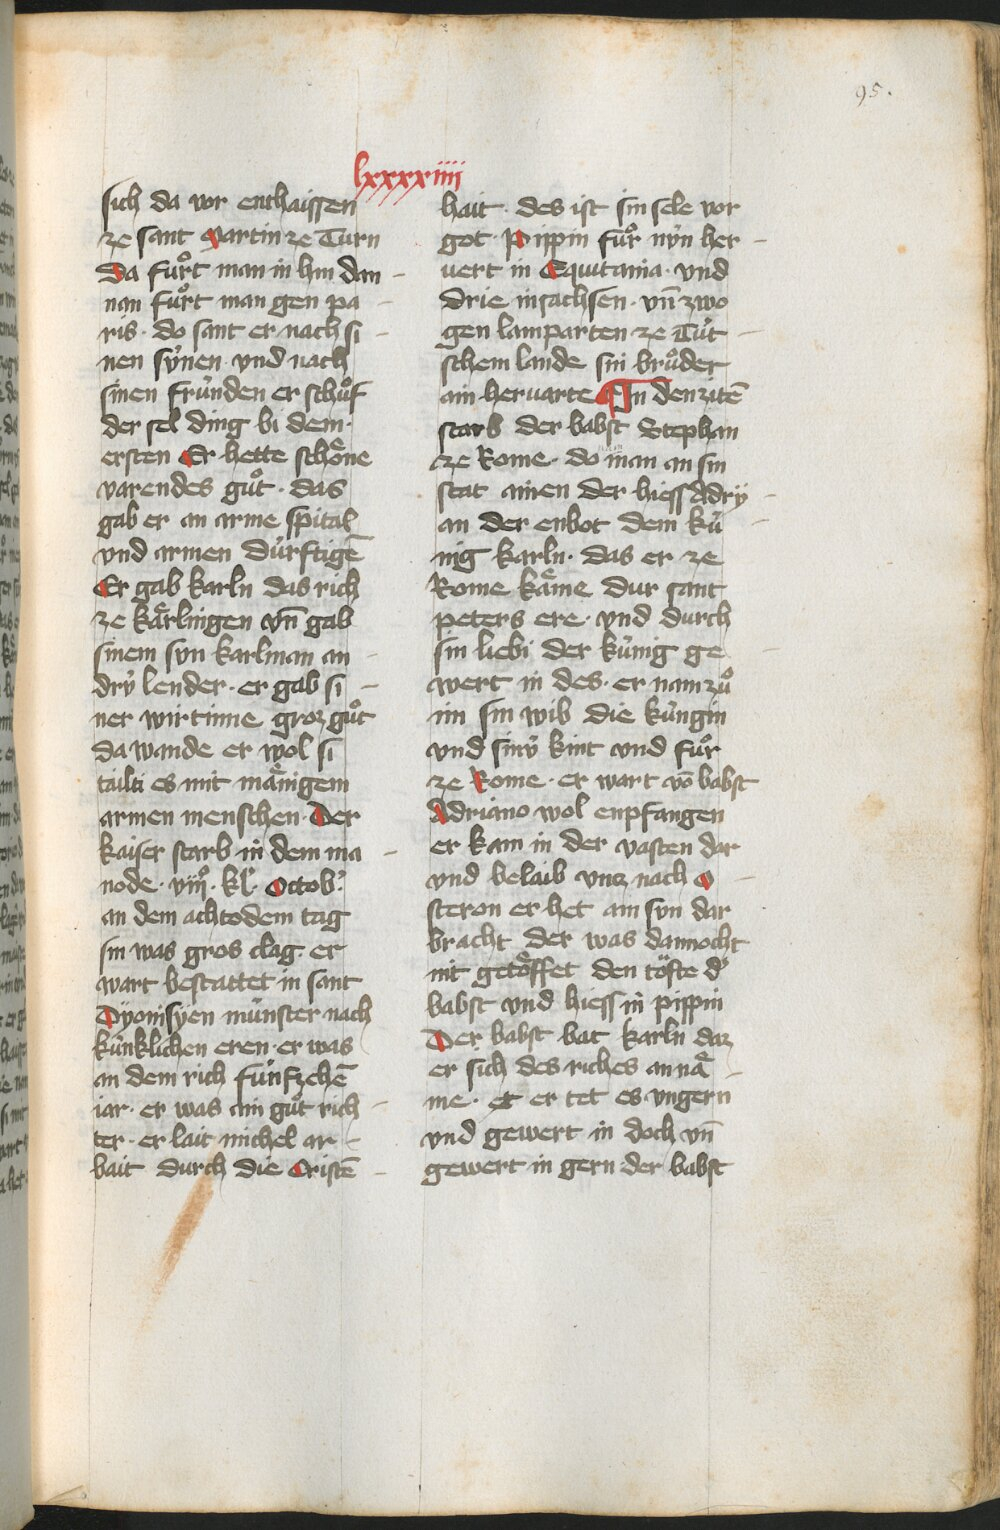 95.
lxxxxiiii
sich da vor enthaissen
ze sant Martin ze Turn
Da fuͦrt man in hin dan -
nan fuͦrt man gen pa -
ris · do sant er nach si -
nen sv́nen · vnd nach
sinen frúnden er schuͦf
der sel ding bi dem ·
ersten Er hette schoͤne
varendes guͦt · das
gab er an arme spital
vnd armen dúrftigē
Er gab karln das rich
ze kaͤrlingen vn̄ gab
sinem svn karlman an -
drẏ lender · er gab si -
ner wirtinne groz guͦt
da wande er wol si
tailti es mit maͤnigem
armen menschen · Der
kaiser starb in dem ma -
node · viijº · kl' · Octob'
an dem achtodem tag
sin was gros clag · er
wart bestattet in sant
Dyonisyen múnster nach
kúnklichen eren · er was
an dem rich fúnfzehē
iar · er was ain guͦt rich -
ter · er lait michel ar -
bait durch die Cristē -
hait · des ist sin sele vor
got · Pippin fuͦr nv́n her -
uert in Equitania · vnd
drie in sachsen · vn̄ zwo
gen lamparten ze Tút -
schem lande sin bruͦder
ain heruarte In den zitē
starb der babst Stephan
ze Rome · do man an sin
stat ainen der hiess Adry -
an der enbot dem kú -
nig karln · das er ze
Rome kaͤme dur sant
peters ere · vnd durch
sin liebi der kúnig ge -
wert in des · er nam zuͦ
im sin wib die kúngin
vnd sinv́ kint vnd fuͦr
ze Rome · er wart vō babst
Adriano wol enpfangen
er kam in der vasten dar
vnd belaib vnz nach O -
steron er het ain svn dar
bracht der was dannocht
nit getoͤffet den tofte d'
babst vnd hiess in pippin
Der babst bat karln daz
er sich des riches an naͤ -
me · et er tet es vngern
vnd gewert in doch vn̄
gewert in gern der babst